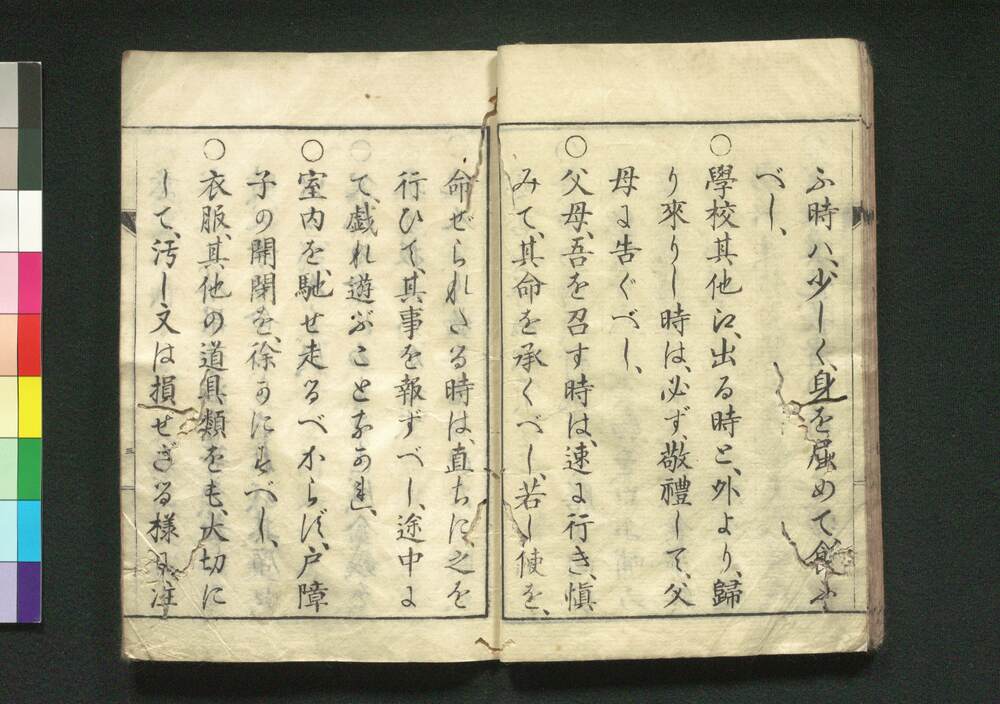 ふ時ハ、少しく、身を屈めて、
べし、
○學校其他江、出る時と、外より、歸
り來りし時は、必ず、敬禮して、父
母に告ぐべし、
○父母、吾を召す時は、速に行き、愼
みて、其命を承くべし、若し使を、
命ぜられたる時は、直ちに、之を
行ひて、其事を報ずべし、途中に
て、戯れ遊ぶことなかれ、
○室内を、馳せ走るべからず、戸障
子の開閉を、徐かにすべし、
○衣服、其他の道具類をも、大切に
して、汚し又は損せざる様に注
三